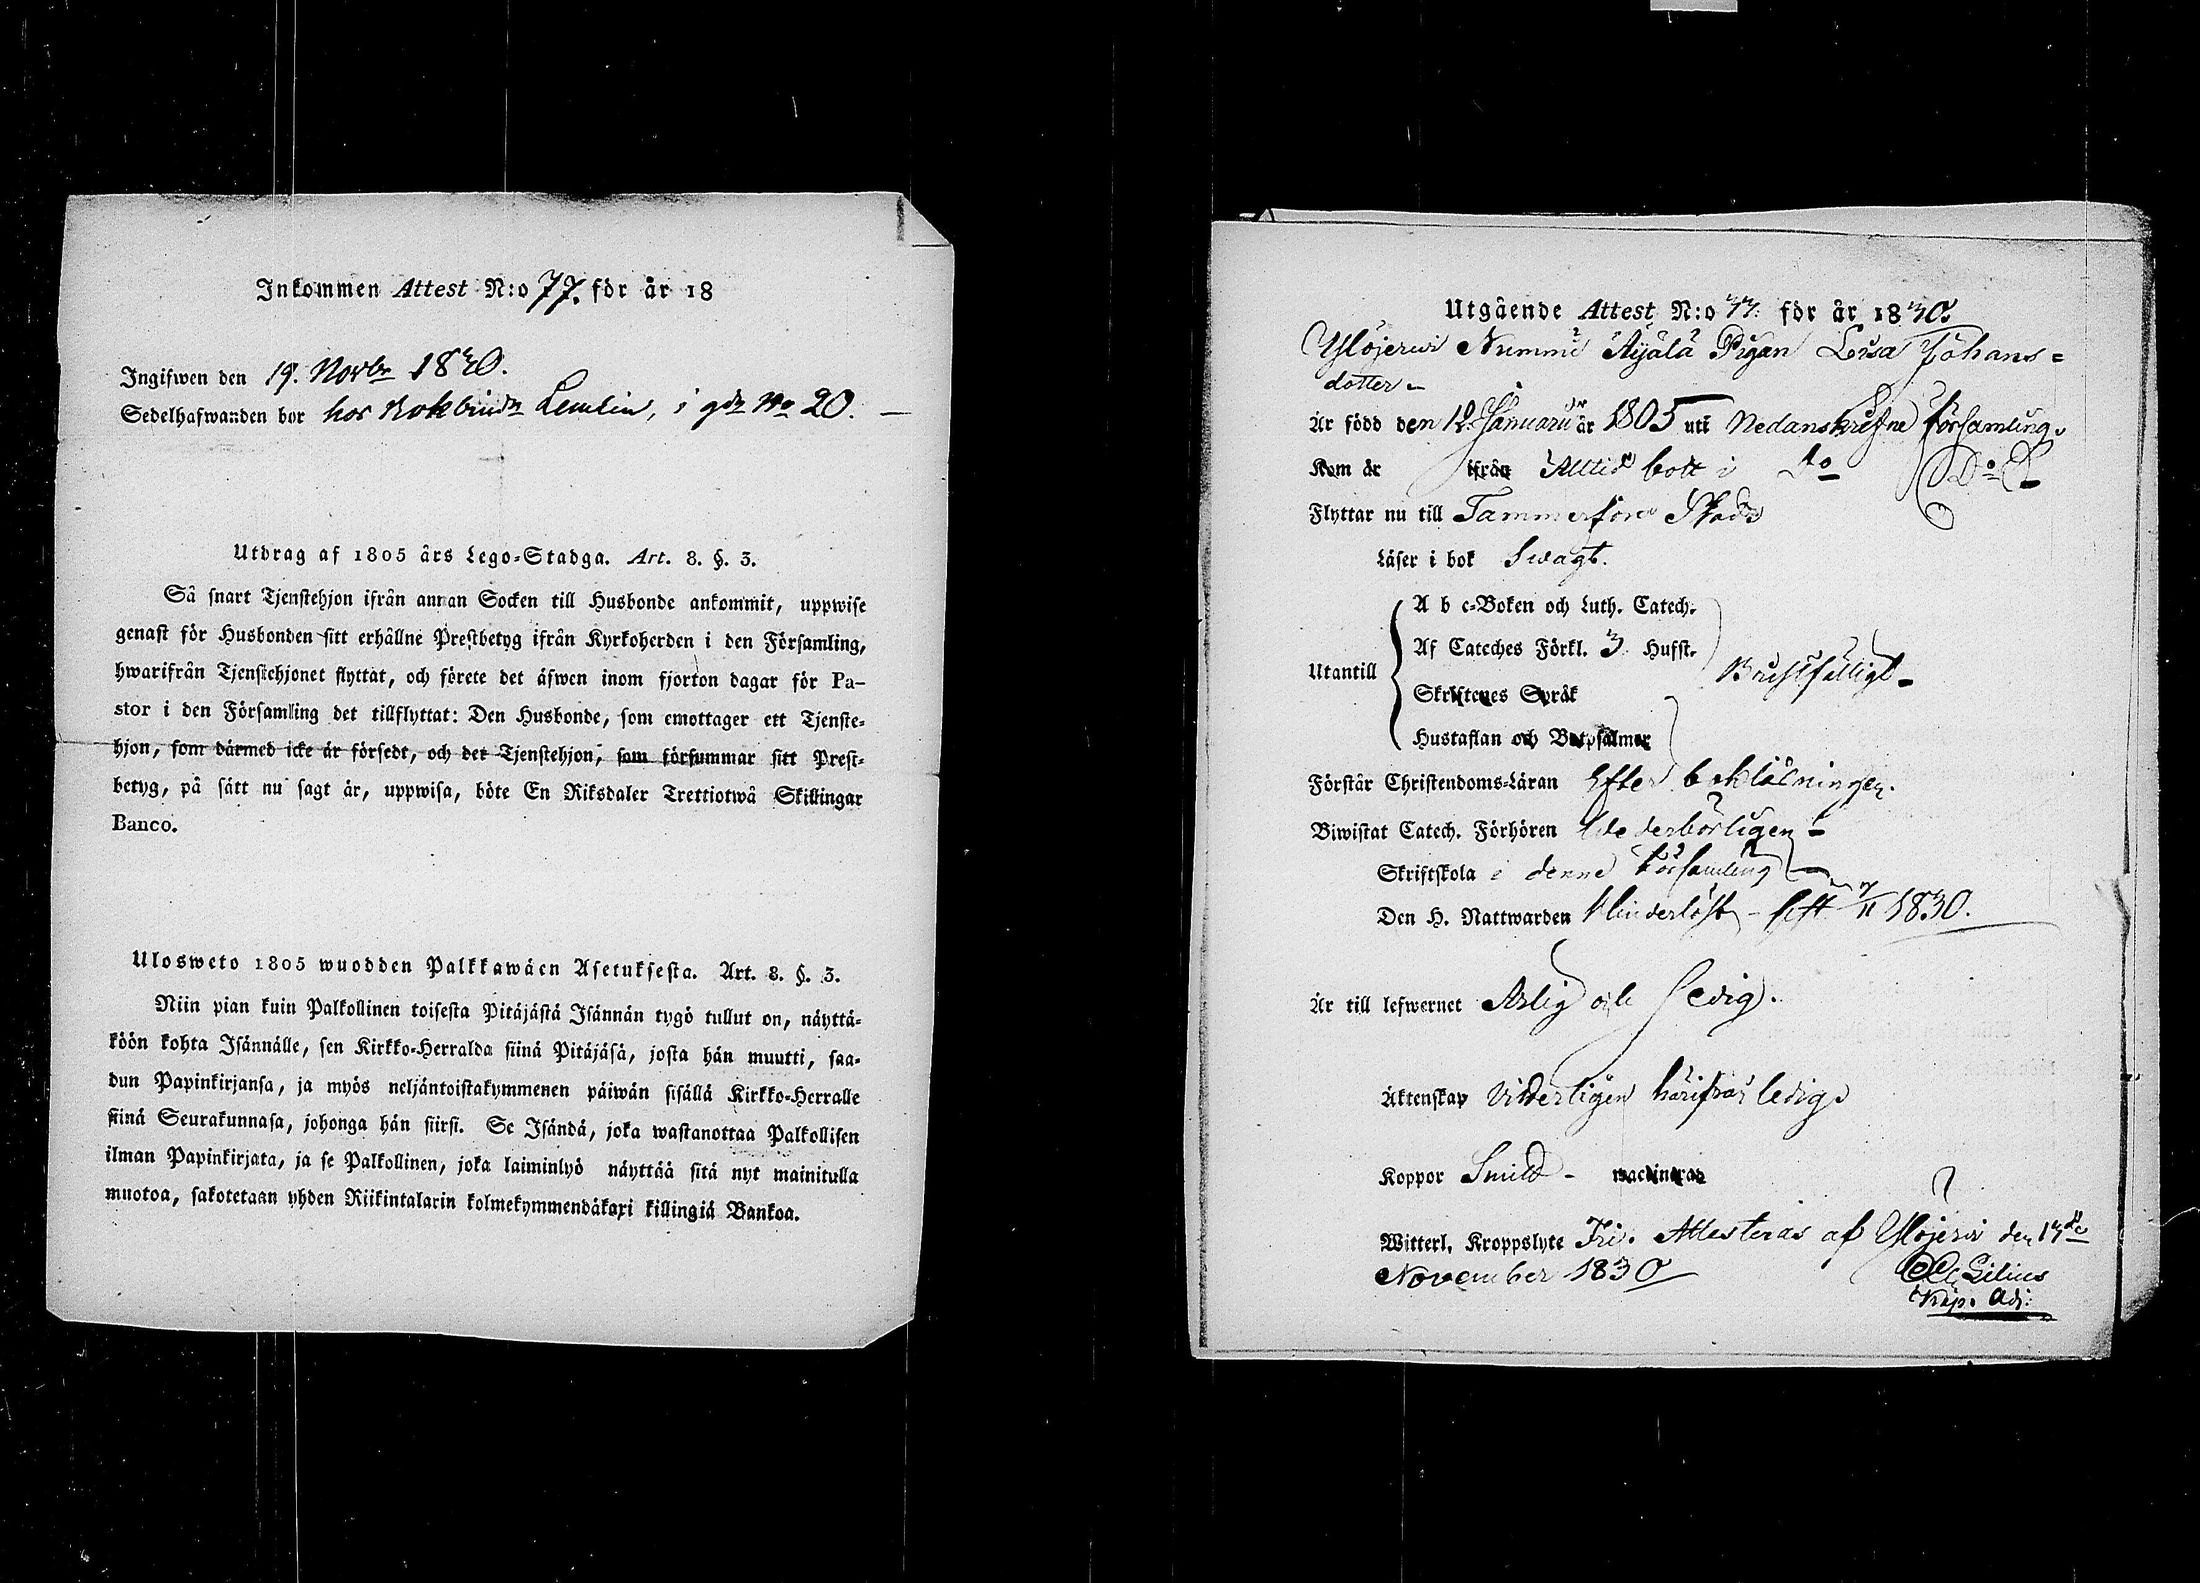 Inkommen Attest N:o 77. för år 18
Ingifwen den 19. Novbr 1830.
Sedelhafwanden bor hos Bokbindn Lemlin, i gdn No 20. —
Utdrag af 1805 års Lego-Stadga. Art. 8. §. 3.
Så snart Tjenstehjon ifrån annan Socken till Husbonde ankommit, uppwise
genast för Husbonden sitt erhållne Prestbetyg ifrån Kyrkoherden i den Församling,
hwarifrån Tjenstehjonet flyttat, och förete det äfwen inom fjorton dagar för Pa-
stor i den Församling det tillflyttat: Den Husbonde, som emottager ett Tjenste-
hjon, som därmed icke är försedt, och det Tjenstehjon, som försummar sitt Prest-
betyg, på sätt nu sagt är, uppwisa, böte En Riksdaler Trettiotwå Skillingar
Banco.
Ulosweto 1805 wuodden Palkkawäen Asetuksesta. Art. 8. §. 3.
Niin pian kuin Palkollinen toisesta Pitäjästä Isännän tygö tullut on, näyttä-
köön kohta Isännälle, sen Kirkko-Herralda siinä Pitäjäsä, josta hän muutti, saa-
dun Papinkirjansa, ja myös neljäntoistakymmenen päiwän sisällä Kirkko-Herralle
siinä Seurakunnasa, johonga hän siirsi. Se Isändä, joka wastanottaa Palkollisen
ilman Papinkirjata, ja se Palkollinen, joka laiminlyö näyttää sitä nyt mainitulla
muotoa, sakotetaan yhden Riikintalarin kolmekymmendäkaxi killingiä Bankoa.
Utgående Attest N:o 33. för år 1830.
Ylöjerwi Nummi Äijälä Pigan Lisa Johans=
dotter -
Är född den 12. Januarii år 1805 uti Nedanskrefne församling.
Kom år ifrån Alltid bott i do Do
Flyttar nu till Tammerfors Stad
Läser i bok Swagt.
Utantill
A b c-Boken och Luth. Catech.
Af Cateches Förkl. 3 Hufst.
Skriftenes Språk
Hustaflan och Botpsalmer
Bristfälligt -
Förstår Christendoms-Läran Efter beklädningen.
Biwistat Catech. Förhören Wederbörligen -
Skriftskola i denne Församling
Den H. Nattwarden Hinderlöst - sist 7/11 1830.
Är till lefwernet Ärlig och ledig.
Äktenskap Vitterligen härifrån ledig
Koppor Smitto - vaccinerad
Witterl. Kroppslyte Fri. Attesteras af Ylöjerwi den 13de
November 1830
Lilius
Kap. Adj.